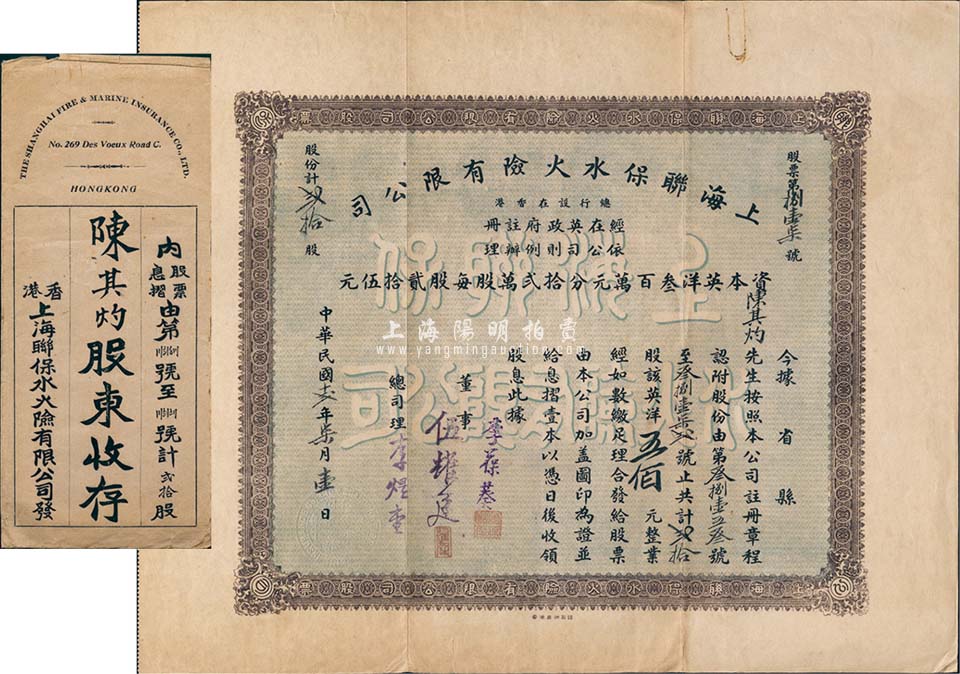 THE SHANGHAI FIRE & MARINE INSURANCE CO., LTD.
No. 269 Des Voeux Road C.
HONGKONG
內股票息摺由第 號至 號計 弍拾股
陳其灼股東收存
香港上海聯保水火險有限公司發
上海聯保水火險有限公司股票
股票第捌壹柒號
上海聯保水火險有限公司
股份計弍拾股
總行設在香港
經在英政府註冊
依公司則例辦理
資本英洋叁百萬元分拾弍萬股每股貳拾伍元
今據 省 縣
陳其灼先生按照本公司註冊章程
認附股份由第叁捌壹五叁號
至叁捌壹柒弍號止共計弍拾
股該英洋五佰元整業
經如數繳足理合發給股票
由本公司加蓋圖印為證並
給息摺壹本以憑日後收領
股息此據
董事
李葆葵
伍耀廷
總司理
李煜堂
中華民國 年柒月壹日
上海聯保水火險有限公司股票
上海陽明拍賣
www.yangmingauction.com